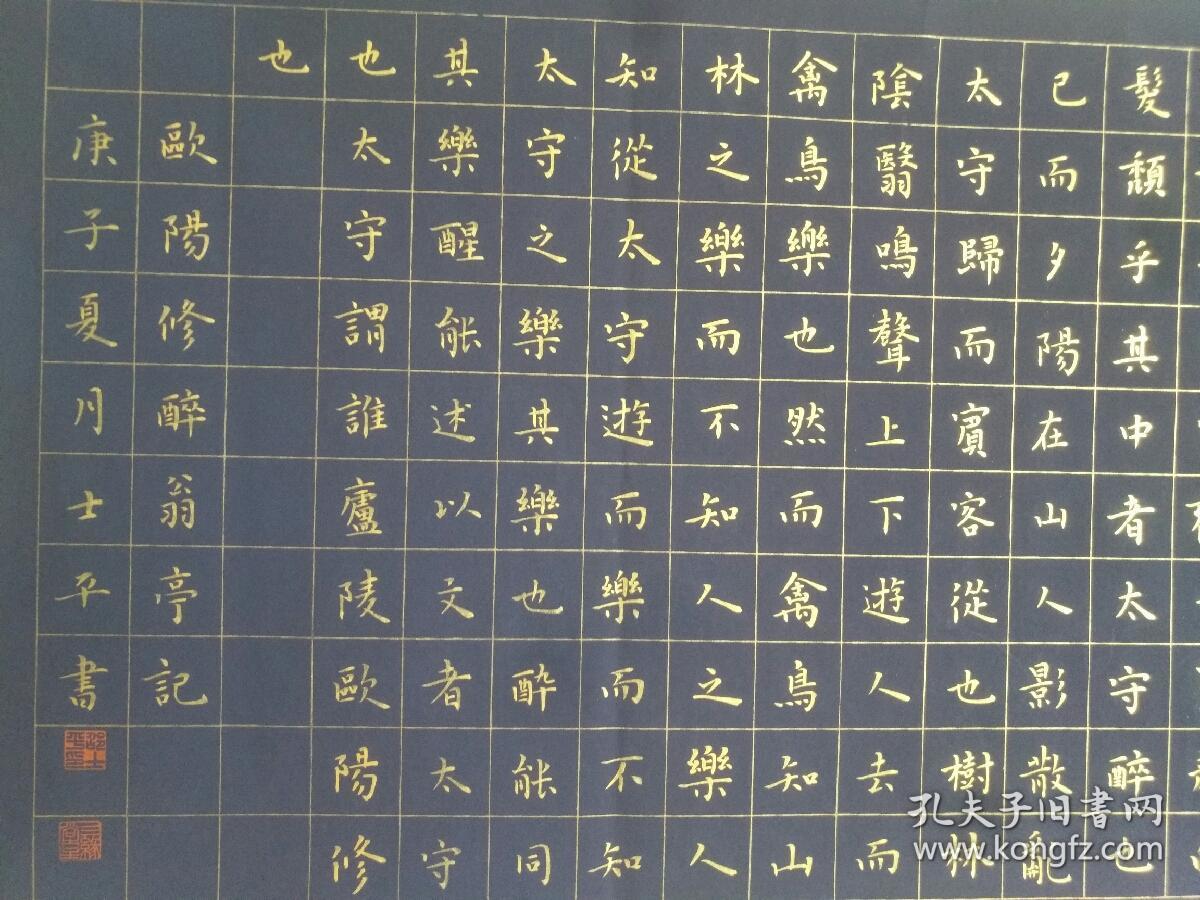 髮頹乎其中者太守醉也
已而夕陽在山人影散亂
太守歸而賓客從也樹林
陰翳鳴聲上下遊人去而
禽鳥樂也然而禽鳥知山
林之樂而不知人之樂人
知從太守遊而樂而不知
太守之樂其樂也酔能同
其樂醒能述以文者太守
也太守謂誰廬陵歐陽修
也
歐陽修醉翁亭記
庚子夏月士平書
孔夫子旧書网
www.kongfz.com